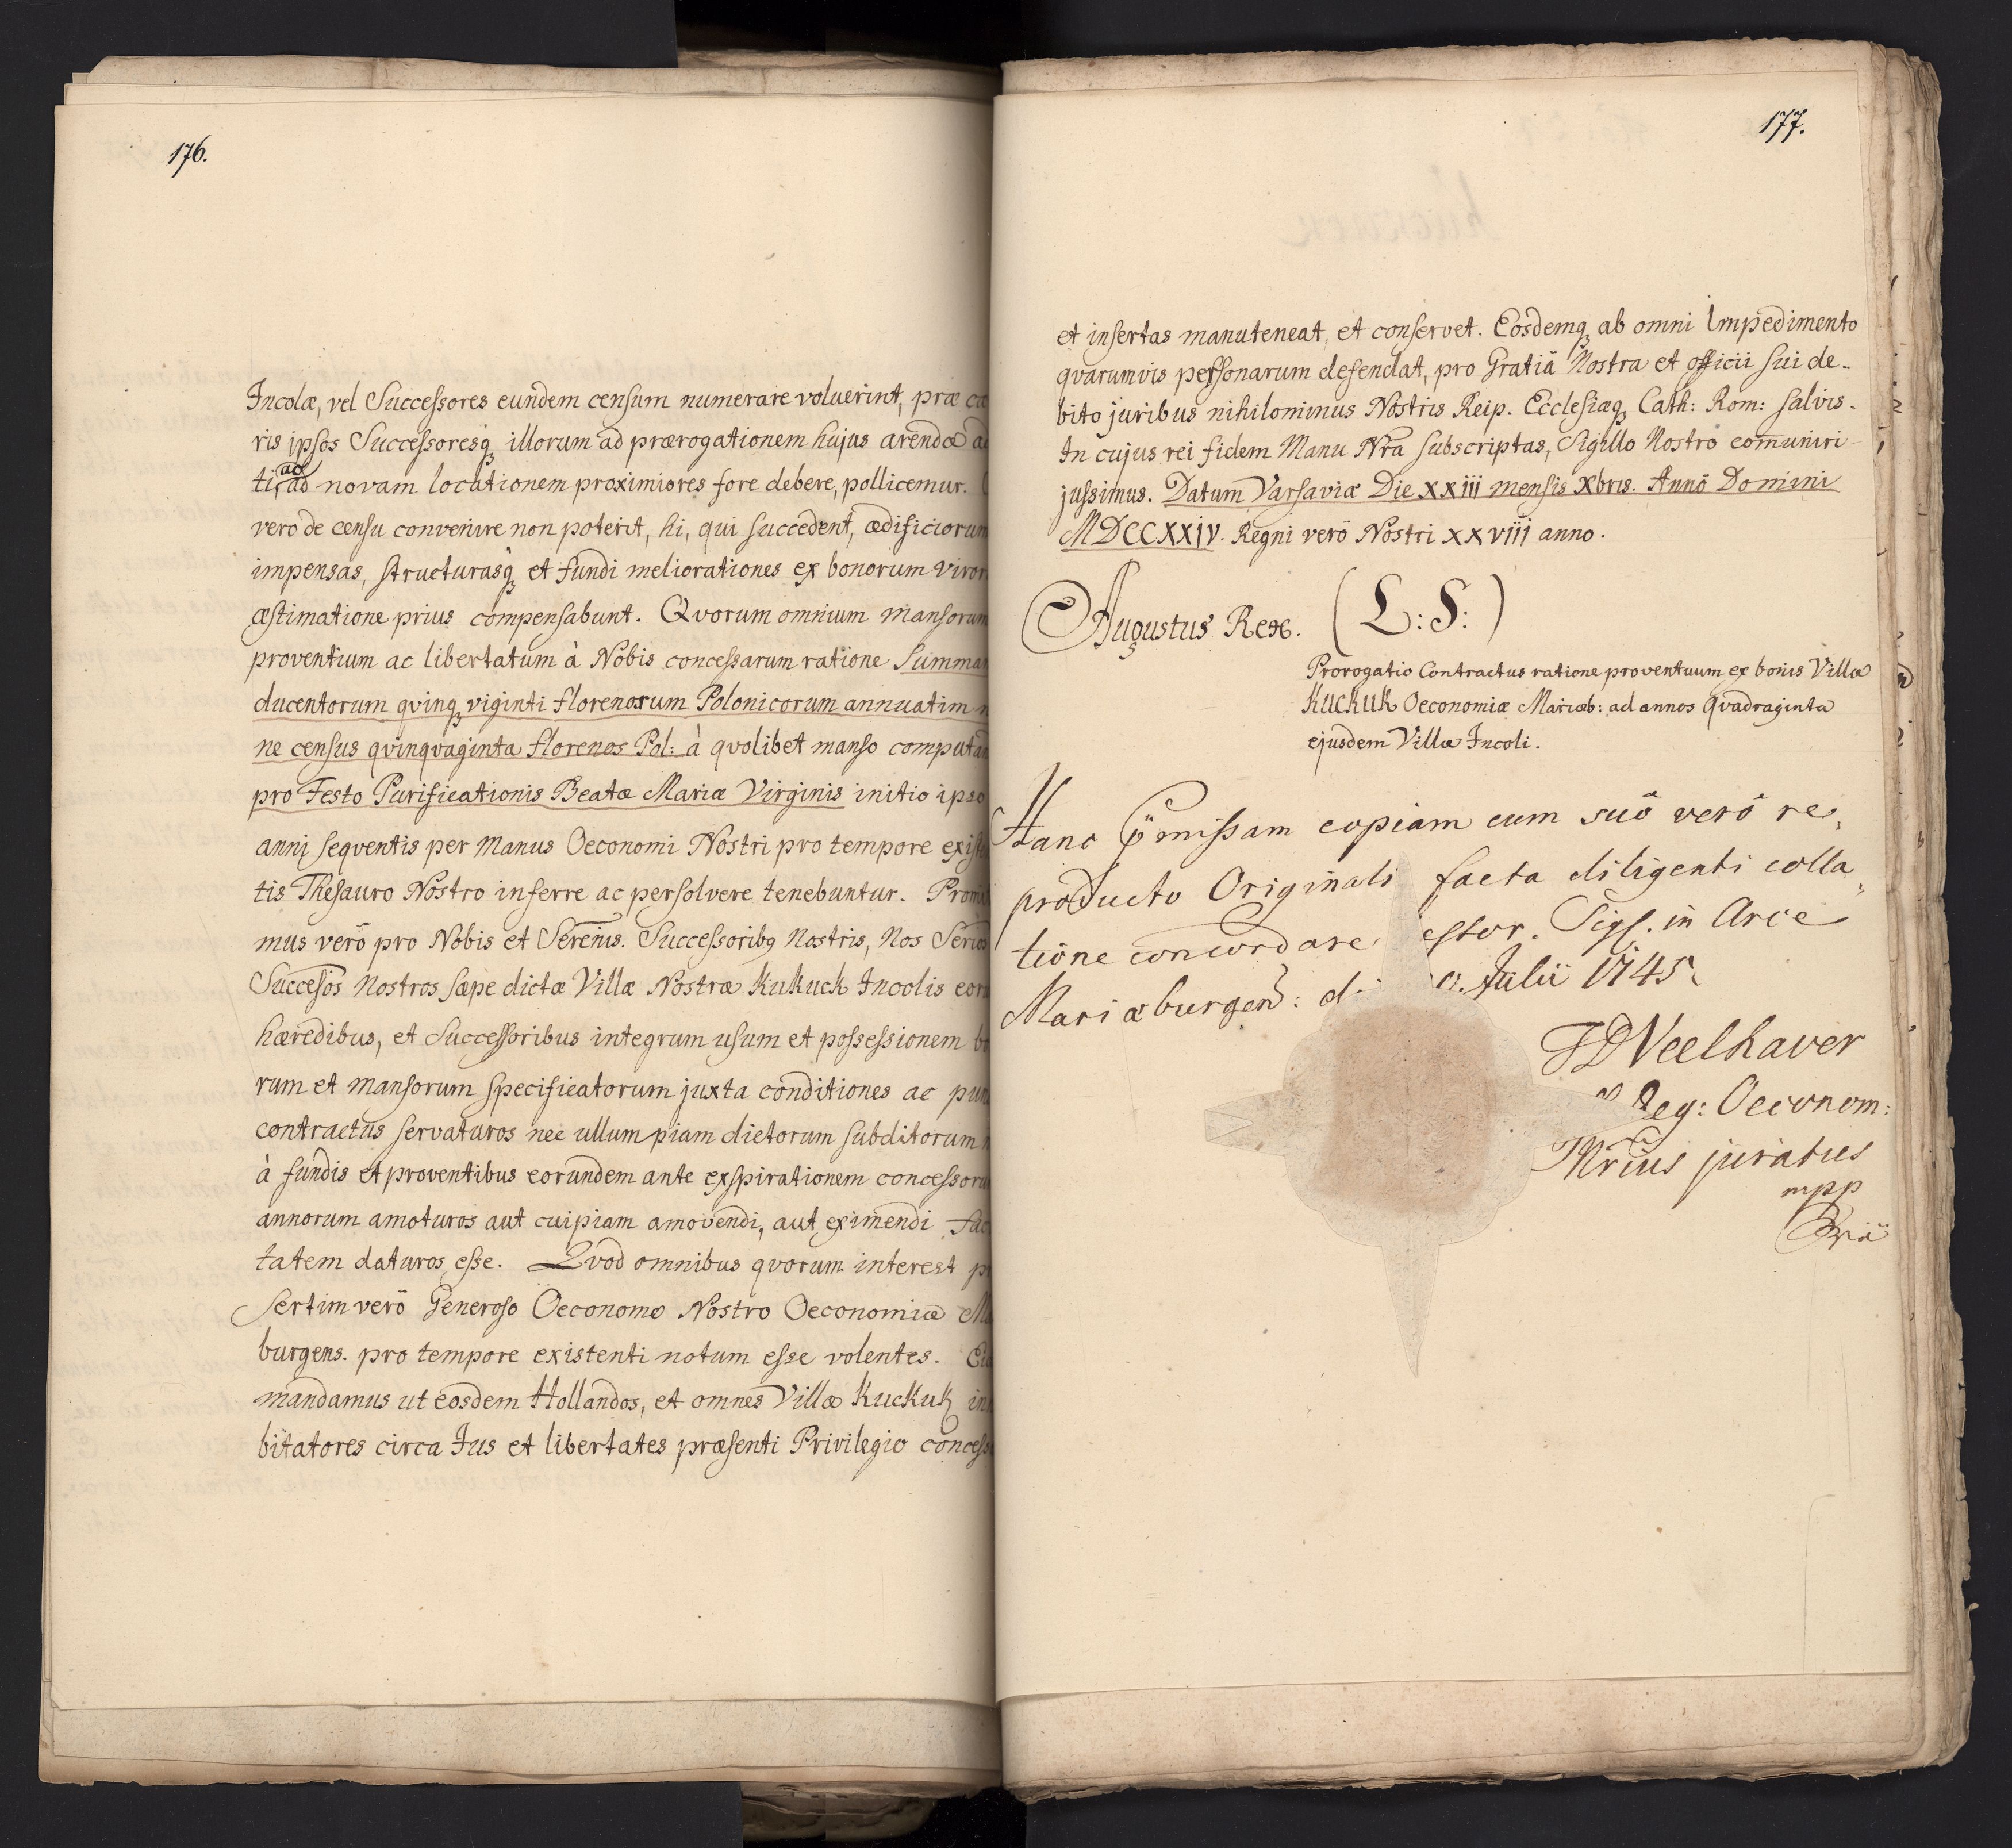 176.
Incolæ, vel Successores eundem censum numerare voluerint, præ
ris ipsos Successoresq illorum ad prærogationem hujus arendæ
ti, ac ad novam locationem proximiores fore debere, pollicemur.
vero de censu convenire non poterit, hi, qui succedent, ædificiorum
impensas, structurasq et fundi meliorationes ex bonorum Viror
æstimatione prius compensabunt. Qvorum omnium mansorum
proventium ac libertatum à Nobis concessarum ratione Summam
ducentorum qvinq viginti florenorum Polonicorum annuatim
ne census qvinqvaginta florenos Pol: à qvolibet manso computan
pro Festo Purificationis Beatæ Mariæ Virginis initio ipso
anni seqventis per Manus Oeconomi Nostri pro tempore exis
tis Thesauro Nostro inferre ac persolvere tenebuntur. Promi
mus verö pro Nobis et Serenis. Successoribq Nostris, Nos Seren
Succesös Nostros sæpe dictæ Villæ Nostræ Kukuck Incolis eor
hæredibus, et Successoribus integrum usum et possessionem bo
rum et mansorum specificatorum juxta conditiones ac pun
contractûs servaturos nec ullum piam dictorum subditorum
à fundis et proventibus eorundem ante exspirationem concessoru
annorum amoturos aut cuipiam amovendi, aut eximendi fac
tatem daturos esse. Qvod omnibus qvorum interest p
sertim verö Generoso Oeconomo Nostro Oeconomiæ Ma
burgens. pro tempore existenti notum esse volentes. Eid
mandamus ut eosdem Hollandos, et omnes Villæ Kuckuk in
bitatores circa Jus et libertates præsenti Privilegio concess
177.
et insertas manuteneat, et conservet. Eosdemq ab omni Impedimento
qvarumvis personarum defendat, pro Gratiâ Nostra et officii sui de..
bito juribus nihilominus Nostris Reip. Ecclesiæq Cath: Rom: salvis.
In cujus rei fidem Manu Nrâ subscriptas, Sigillo Nostro com̄uniri
jussimus. Datum Varsaviæ Die XXIII mensis Xbris. Annö Domini
MDCCXXIV. Regni verö Nostri XXVIII anno.
Augustus Rex. (L:S:)
Prorogatio Contractus ratione proventuum ex bonis Villæ
Kuckuk Oeconomiæ Mariæb: ad annos Qvadraginta
ejusdem Villæ Incoli.
Hanc pmissam copiam cum suö verö re,
producto Originali facta diligenti colla,
tione concordare estor. Sigs. in Arce
Mariæburgen: d. Julii 1745
JD Veelhaver
Reg: Oeconom:
Nrius juratus
mpp